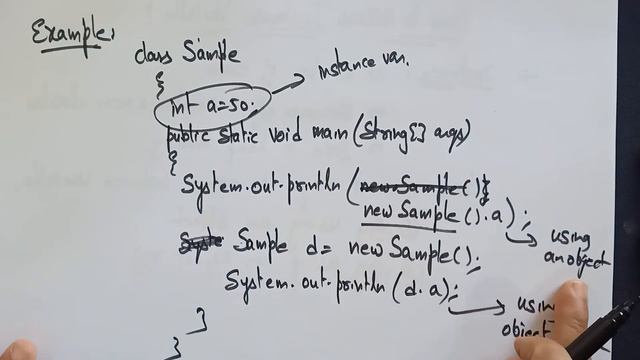 Example:
class Sample
{
int a=50;
instance var.
public static void main(String[] args)
{
System.out.println(new Sample()
new Sample().a);
using an object
Sample d= new Sample();
System.out.println(d.a);
using object
}
}